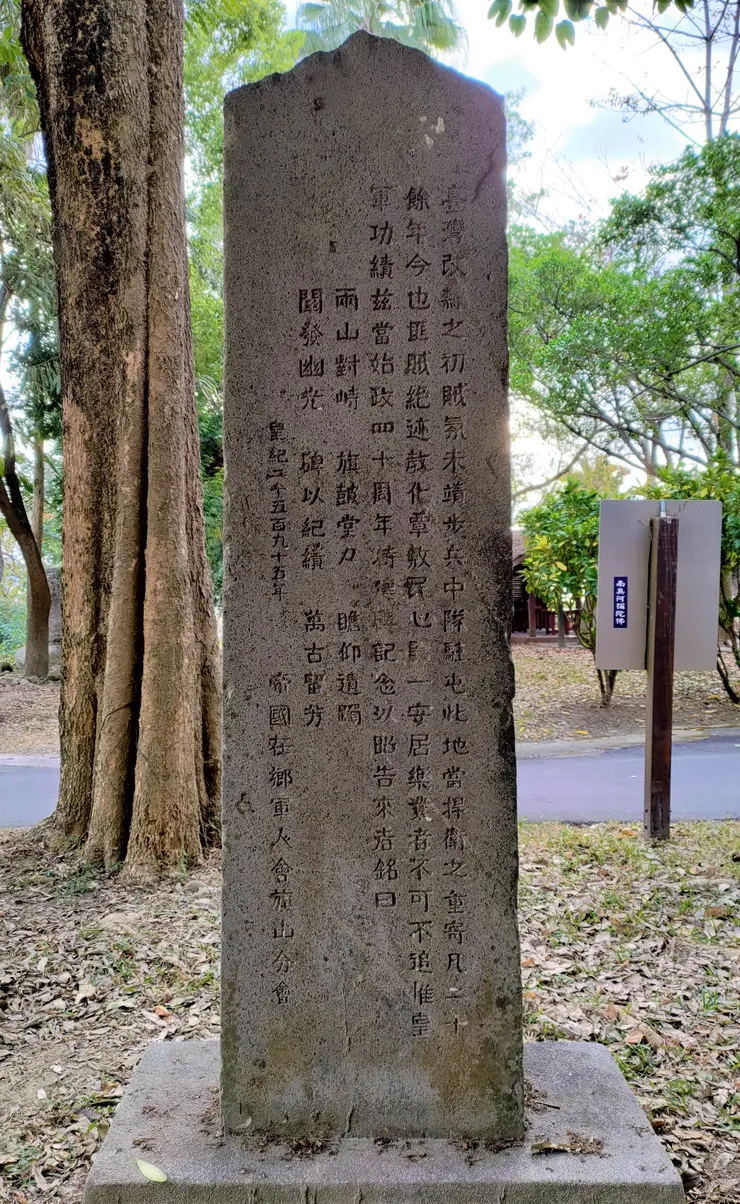 臺灣改隸之初賊氛未靖步兵中隊駐屯此地當捍衛之重寄凡二十
餘年今也匪賊絕迹教化覃敷民心歸一安居樂業者不可不追惟皇
軍功績茲當始政四十周年特建碑記念以昭告來者銘曰
兩山對峙 旗鼓堂々 瞻仰遺躅
闡發幽光 碑以紀績 萬古留芳
皇紀二千五百九十五年 帝國在鄉軍人會旗山分會
南無阿彌陀佛